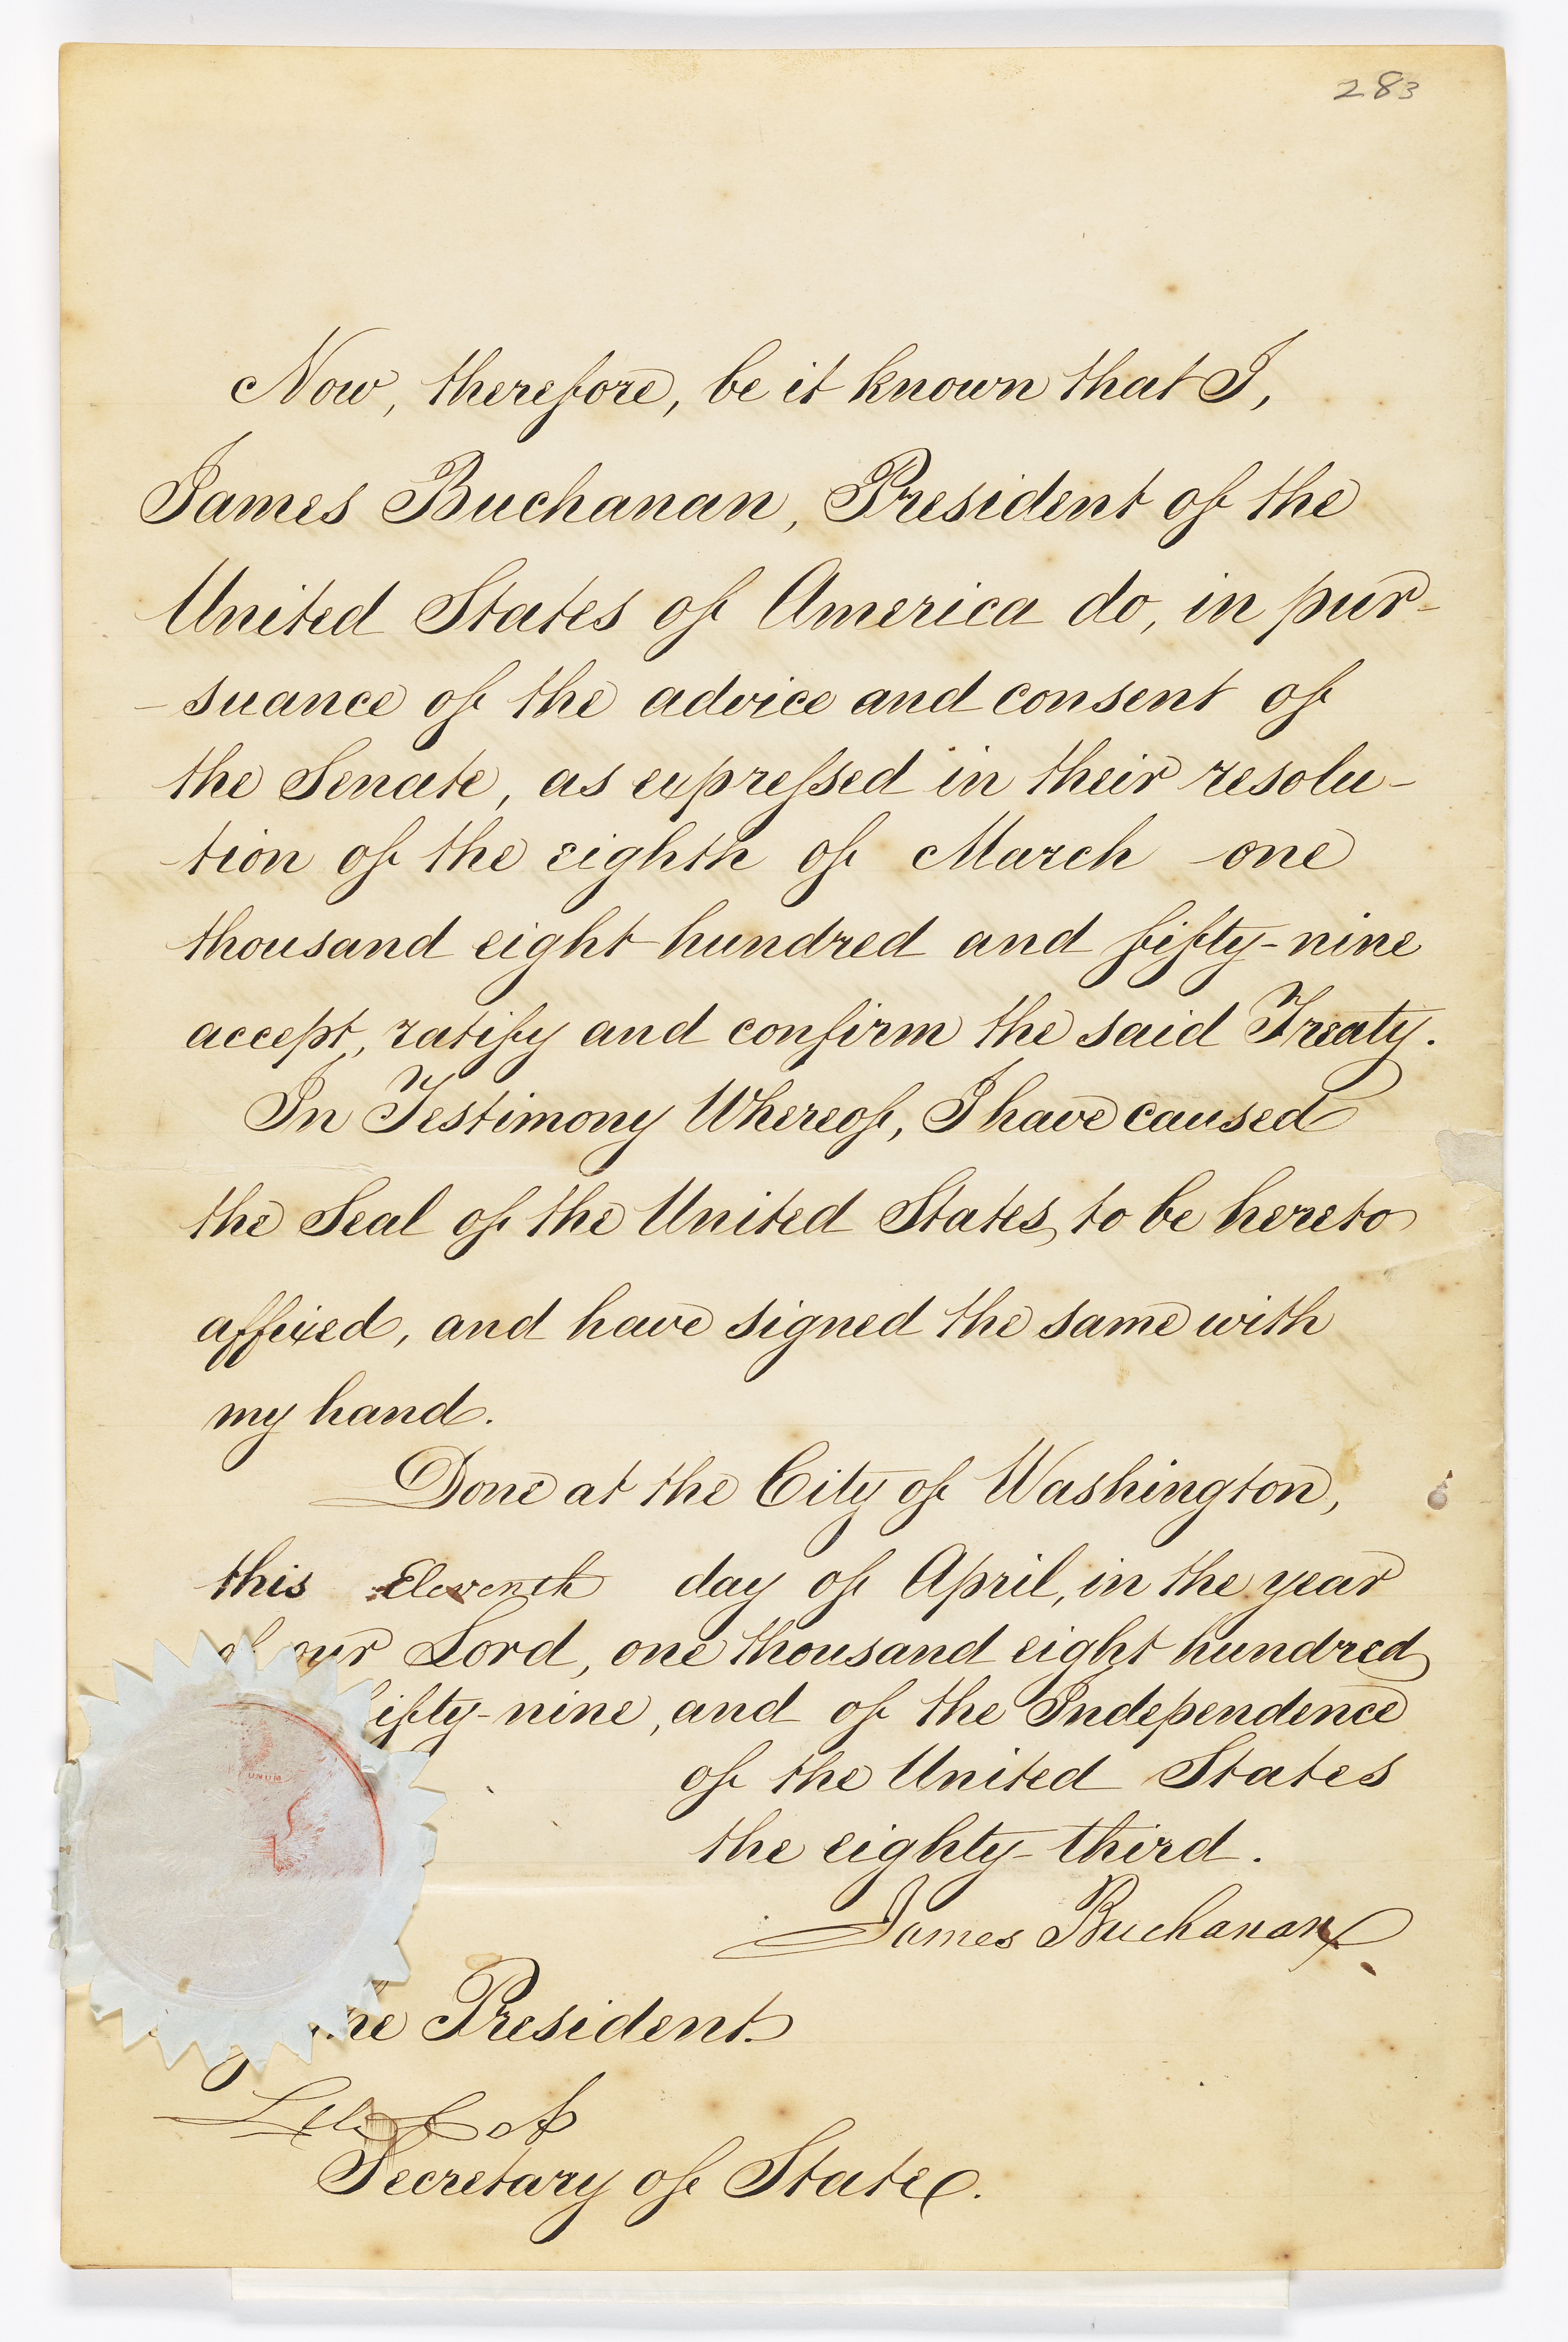 283
Now, therefore, be it known that I,
James Buchanan, President of the
United States of America do, in pur-
-suance of the advice and consent of
the Senate, as expressed in their resolu-
-tion of the eighth of March one
thousand eight hundred and fifty-nine
accept, ratify and confirm the said Treaty.
In Testimony Whereof, I have caused
the Seal of the United States, to be hereto
affixed, and have signed the same with
my hand.
Done at the City of Washington,
this Eleventh day of April, in the year
of our Lord, one thousand eight hundred
fifty-nine, and of the Independence
UNUM
of the United States
the eighty-third.
James Buchanan
the President.
Lewis Cass
Secretary of State.